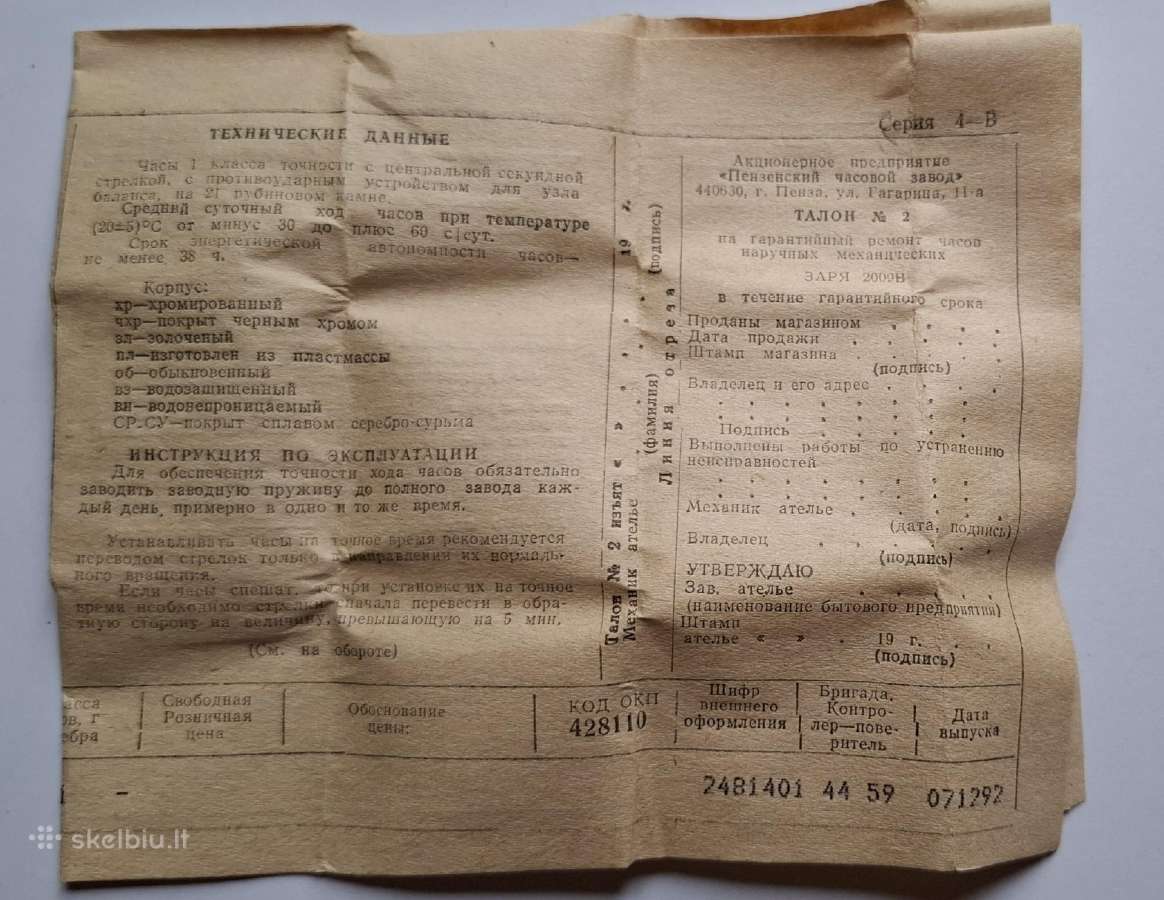 Серия 4—В
ТЕХНИЧЕСКИЕ ДАННЫЕ
Часы 1 класса точности с центральной секундной
стрелкой, с противоударным устройством для узла
баланса, на 21 рубиновом камне.
Средний суточный ход часов при температуре
(20±5)°С от минус 30 до плюс 60 с/сут.
Срок энергетической автономности часов—
не менее 38 ч.
Корпус:
хр—хромированный
чхр—покрыт черным хромом
зл—золоченый
пл—изготовлен из пластмассы
об—обыкновенный
вз—водозащищенный
вн—водонепроницаемый
СР.СУ—покрыт сплавом серебро-сурьма
ИНСТРУКЦИЯ ПО ЭКСПЛУАТАЦИИ
Для обеспечения точности хода часов обязательно
заводить заводную пружину до полного завода каж-
дый день, примерно в одно и то же время.
Устанавливать часы на точное время рекомендуется
переводом стрелок только в направлении их нормаль-
ного вращения.
Если часы спешат, то при установке их на точное
время необходимо стрелки сначала перевести в обра-
тную сторону на величину, превышающую на 5 мин.
(См. на обороте)
Талон № 2 изъят « » 19 г.
Механик ателье
(фамилия) (подпись)
Линия отреза
Акционерное предприятие
«Пензенский часовой завод»
440630, г. Пенза, ул. Гагарина, 11-а
ТАЛОН № 2
на гарантийный ремонт часов
наручных механических
ЗАРЯ 2009В
в течение гарантийного срока
Проданы магазином . . . .
Дата продажи . . . .
Штамп магазина . . . .
(подпись)
Владелец и его адрес . . . .
Подпись . . . .
Выполнены работы по устранению
неисправностей
Механик ателье . . . .
(дата, подпись)
Владелец . . . .
(подпись)
УТВЕРЖДАЮ
Зав. ателье . . . .
(наименование бытового предприятия)
Штамп
ателье « » . 19 г. .
(подпись)
асса
ов, г
ебра
Свободная
Розничная
цена
Обоснование
цены:
КОД ОКП
428110
Шифр
внешнего
оформления
Бригада,
Контро-
лер—пове-
ритель
Дата
выпуска
–
2481401 44 59 071292
skelbiu.lt